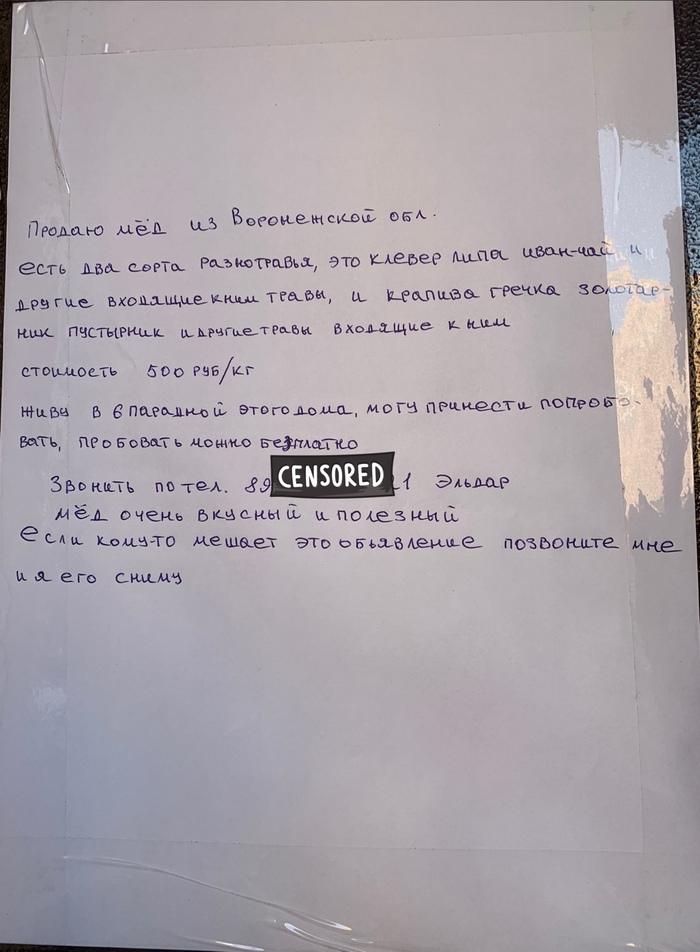 Продаю мёд из Воронежской обл.
есть два сорта разнотравья, это клевер липа иван-чай и
другие входящие к ним травы, и крапива гречка золотар-
ник пустырник и другие травы входящие к ним
стоимость 500 руб/кг
живу в 6 парадной этого дома, могу принести попробо-
вать, пробовать можно бесплатно
Звонить по тел. 89 CENSORED 1 Эльдар
мёд очень вкусный и полезный
если кому-то мешает это объявление позвоните мне
и я его сниму